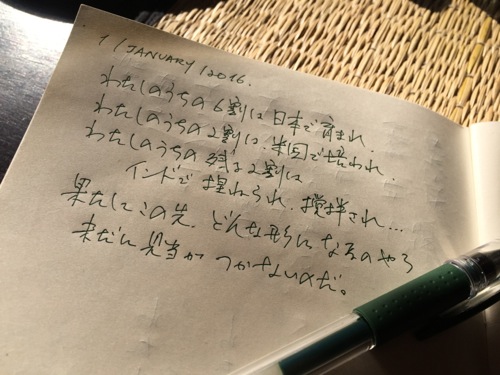 1/JANUARY/2016.
わたしのうちの6割は日本で育まれ、
わたしのうちの2割は、米国で培われ、
わたしのうちの残る2割は
インドで捏ねられ、撹拌され…
果たしてこの先、どんな形になるのやら
未だに見当がつかないのだ。